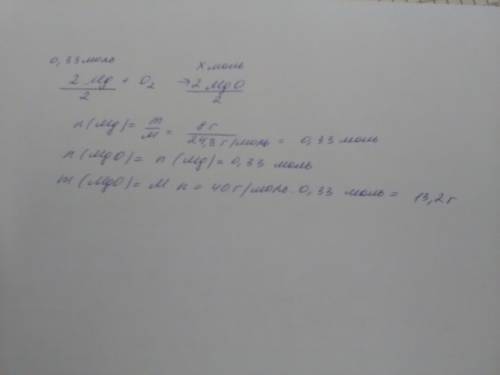 0,33 моль х моль
2 Mg + O2 → 2 MgO
2 2
n (Mg) = m/M = 8 г / 24,3 г/моль = 0,33 моль
n (MgO) = n (Mg) = 0,33 моль
m (MgO) = M n = 40 г/моль · 0,33 моль = 13,2 г